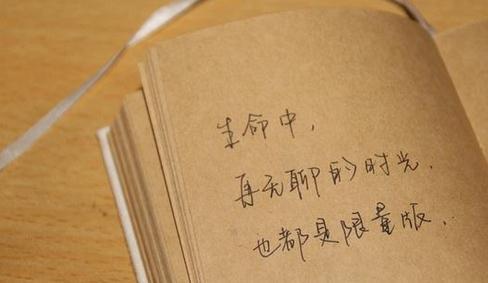 生命中，
再无聊的时光，
也都是限量版．